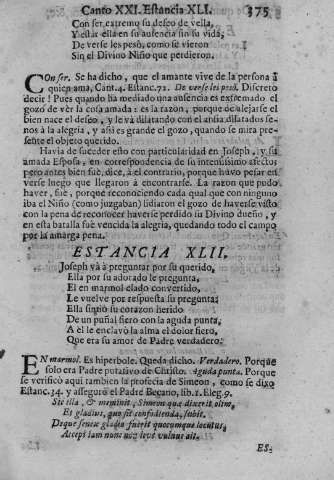 Canto XXI. Estancia XLI. 375
Con ser estremo su deseo de vella,
Y estàr ella en su ausencia sin su vida,
De verse les pesò, como se vieron
Sin el Divino Niño que perdieron.
COn ser. Se ha dicho, que el amante vive de la persona à
quien ama, Cant. 4. Estanc. 72. De verse les pesò. Discreto
decir! Pues quando ha mediado una ausencia es estremado el
gozo de vèr la cosa amada: es la razon, porque de alejarse el
bien nace el deseo, y le và dilatando con el ansia dilatados se-
nos à la alegria, y asi es grande el gozo, quando se mira pre-
sente el objeto querido.
Havia de suceder esto con particularidad en Joseph, y su
amada Esposa, en correspondencia de su intensisimo afecto;
pero antes bien fuè, dice, à el contrario, porque huvo pesar en
verse luego que llegaron à encontrarse. La razon que pudo
haver, fuè, porque reconociendo cada qual que con ninguno
iba el Niño (como juzgaban) lidiaron el gozo de haverse visto
con la pena de reconocer haverse perdido su Divino dueño, y
en esta batalla fuè vencida la alegria, quedando todo el campo
por la amarga pena.
ESTANCIA XLII.
Joseph và à preguntar por su querido,
Ella por su adorado le pregunta,
El en marmol elado convertido,
Le vuelve por respuesta su pregunta:
Ella sintiò su corazon herido
De un puñal fiero con la aguda punta,
A èl le enclavò la alma el dolor fiero,
Que era su amor de Padre verdadero.
EN marmol. Es hiperbole. Queda dicho. Verdadero. Porque
solo era Padre putativo de Christo. Aguda punta. Porque
se verificò aqui tambien la profecia de Simeon, como se dixo
Estanc. 34. y asegurò el Padre Becano, lib. 1. Eleg. 9.
Sic illa, & meminit, Simeon quæ dixerit olim,
Et gladius, quo sit confodienda, subit.
Deque senex gladio fuerit quocumque locutus,
Accepi jam nunc leve vulnus ait.
ES-